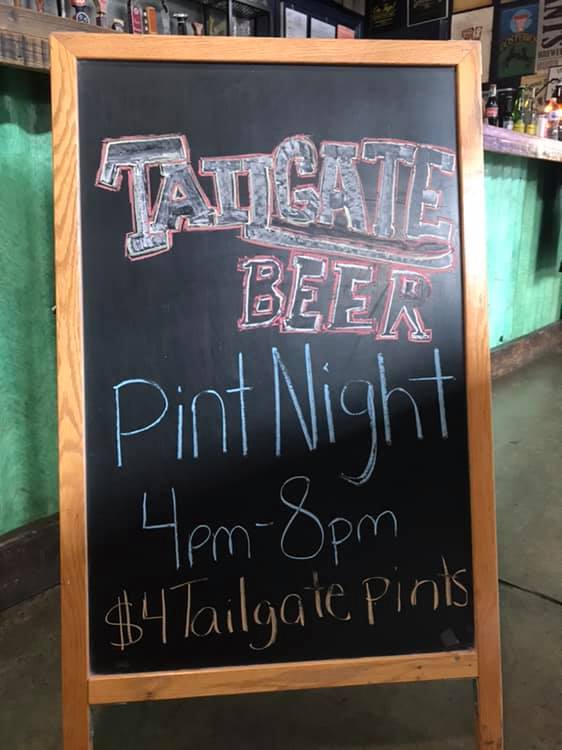 TAILGATE
BEER
Pint Night
4pm-8pm
$4 Tailgate pints